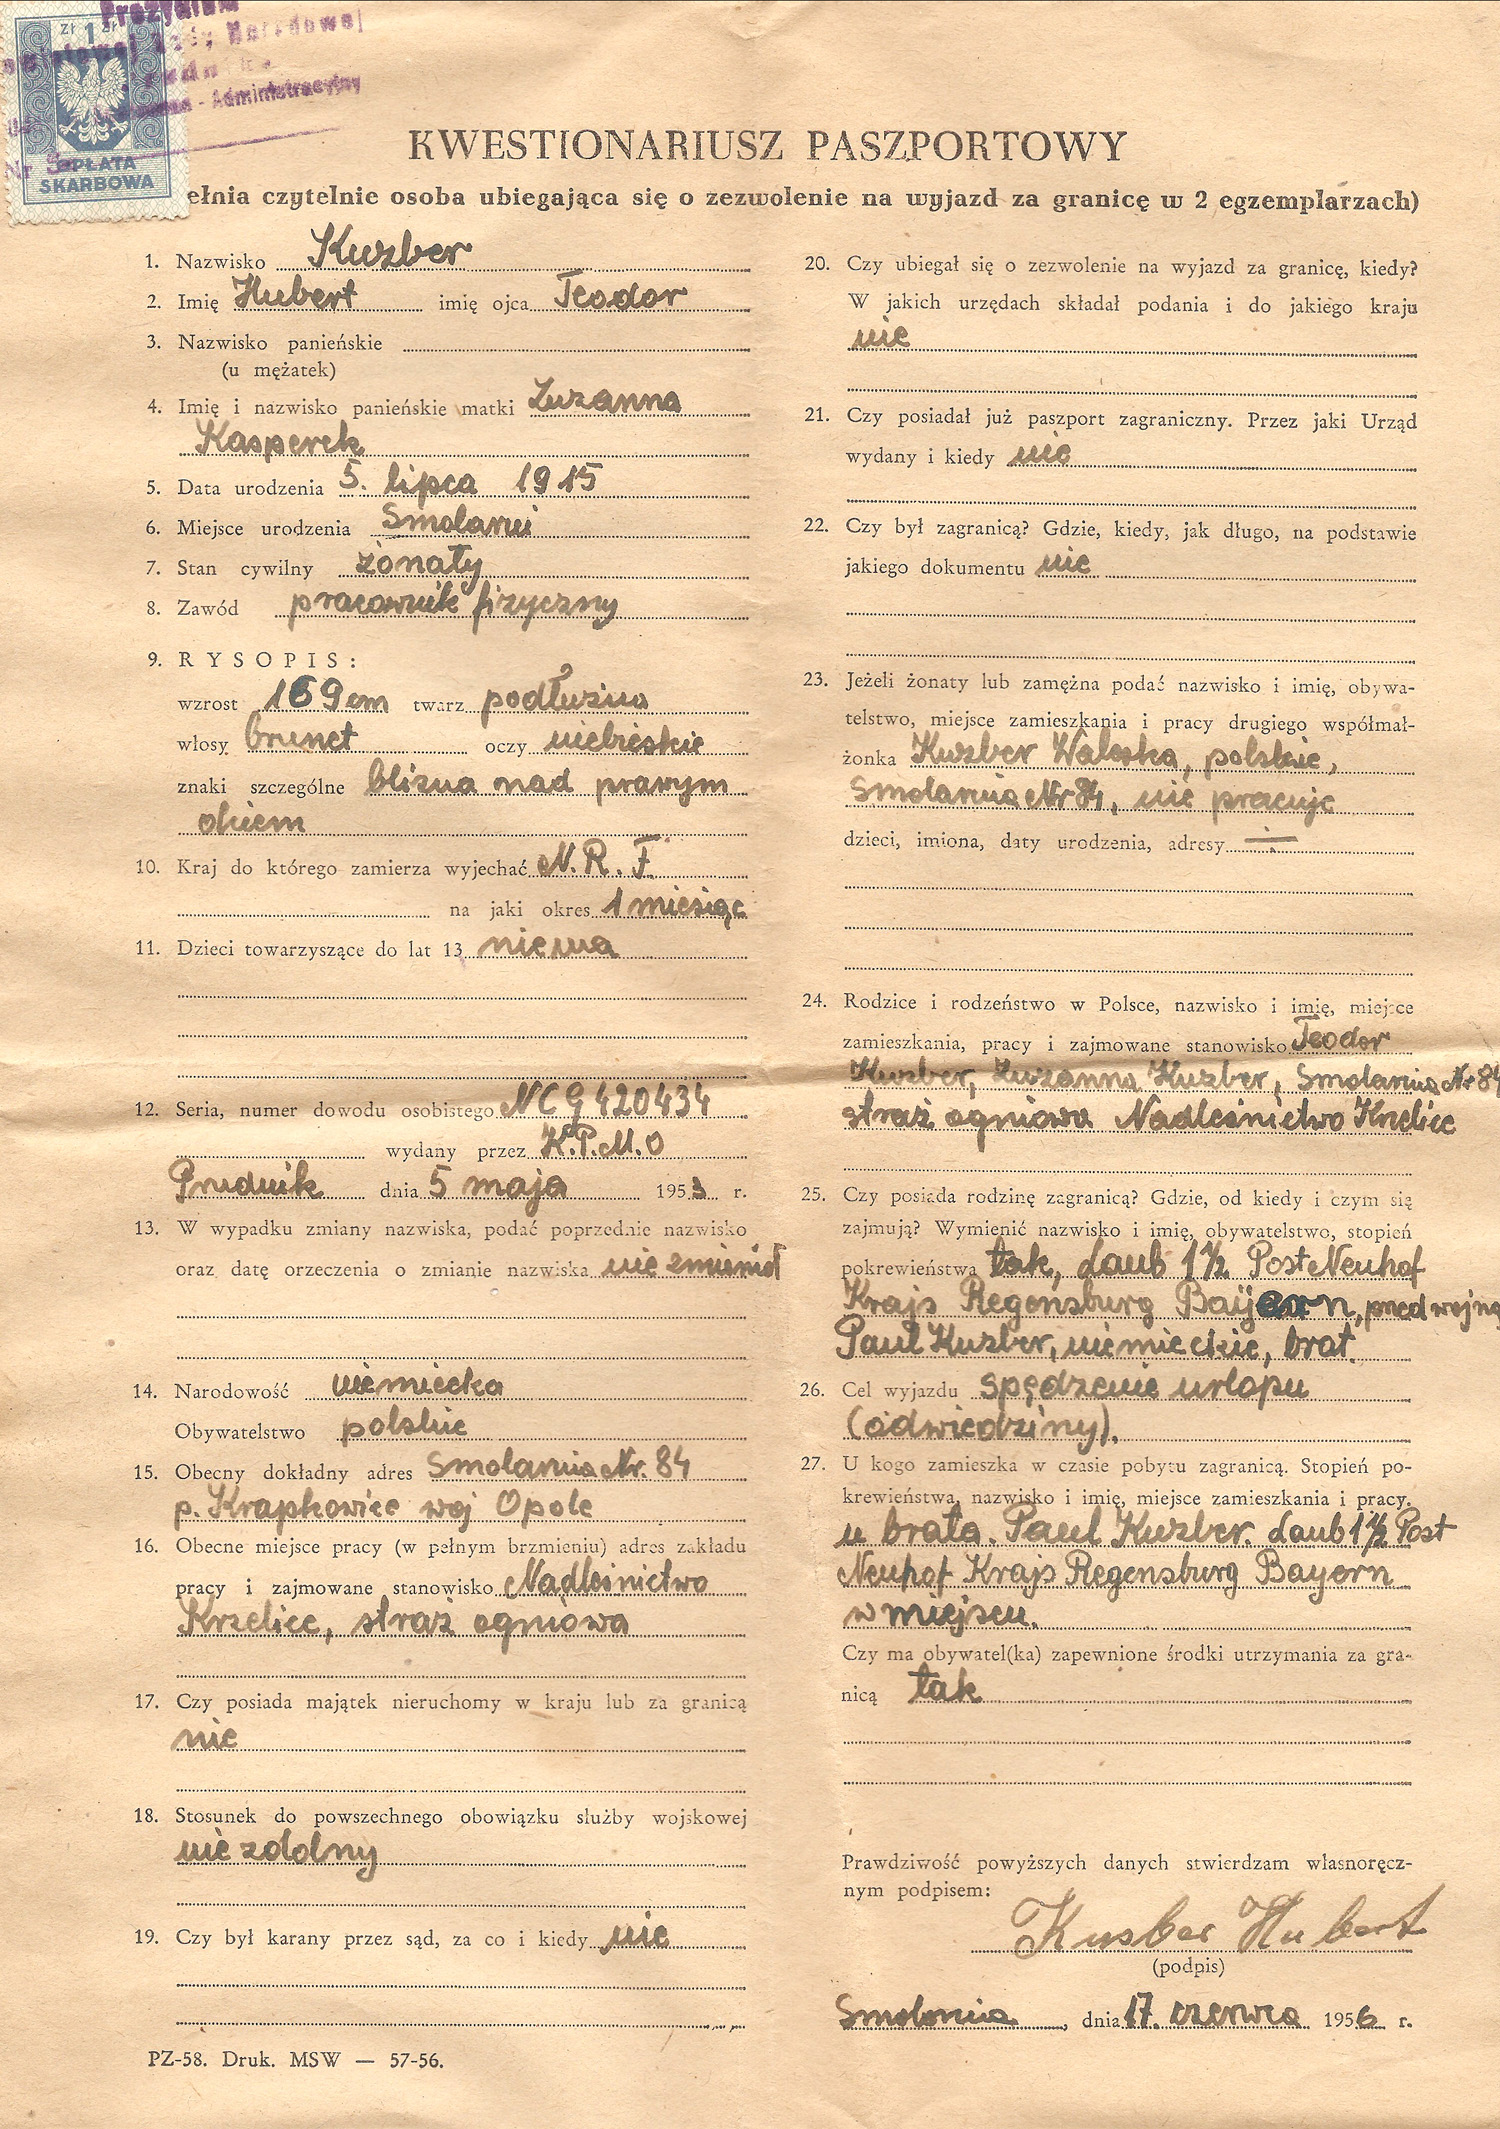 zł 1 zł
OPŁATA
SKARBOWA
Prezydium
Narodowej
- Administracyjny
Nr
KWESTIONARIUSZ PASZPORTOWY
ełnia czytelnie osoba ubiegająca się o zezwolenie na wyjazd za granicę w 2 egzemplarzach)
1. Nazwisko Kuzber
2. Imię Hubert imię ojca Teodor
3. Nazwisko panieńskie
(u mężatek)
4. Imię i nazwisko panieńskie matki Zuzanna
Kasperek
5. Data urodzenia 5. lipca 1915
6. Miejsce urodzenia Smolarni
7. Stan cywilny żonaty
8. Zawód pracownik fizyczny
9. RYSOPIS:
wzrost 169 cm twarz podłużna
włosy brunet oczy niebieskie
znaki szczególne blizna nad prawym
okiem
10. Kraj do którego zamierza wyjechać N.R.F.
na jaki okres 1 miesiąc
11. Dzieci towarzyszące do lat 13 niema
12. Seria, numer dowodu osobistego NCG 420434
wydany przez K.P.M.O
Prudnik dnia 5 maja 1953 r.
13. W wypadku zmiany nazwiska, podać poprzednie nazwisko
oraz datę orzeczenia o zmianie nazwiska nie zmienił
14. Narodowość niemiecka
Obywatelstwo polskie
15. Obecny dokładny adres Smolarnia Nr. 84
p. Krapkowice woj Opole
16. Obecne miejsce pracy (w pełnym brzmieniu) adres zakładu
pracy i zajmowane stanowisko Nadleśnictwo
Krzelice, straż ogniowa
17. Czy posiada majątek nieruchomy w kraju lub za granicą
nie
18. Stosunek do powszechnego obowiązku służby wojskowej
nie zdolny
19. Czy był karany przez sąd, za co i kiedy nie
PZ-58. Druk. MSW — 57-56.
20. Czy ubiegał się o zezwolenie na wyjazd za granicę, kiedy?
W jakich urzędach składał podania i do jakiego kraju
nie
21. Czy posiadał już paszport zagraniczny. Przez jaki Urząd
wydany i kiedy nie
22. Czy był zagranicą? Gdzie, kiedy, jak długo, na podstawie
jakiego dokumentu nie
23. Jeżeli żonaty lub zamężna podać nazwisko i imię, obywa-
telstwo, miejsce zamieszkania i pracy drugiego współmał-
żonka Kuzber Waleska, polskie,
Smolarnia Nr 84, nie pracuje
dzieci, imiona, daty urodzenia, adresy
24. Rodzice i rodzeństwo w Polsce, nazwisko i imię, miejsce
zamieszkania, pracy i zajmowane stanowisko Teodor
Kuzber, Zuzanna Kuzber, Smolarnia Nr 84
straż ogniowa Nadleśnictwo Krzelice
25. Czy posiada rodzinę zagranicą? Gdzie, od kiedy i czym się
zajmują? Wymienić nazwisko i imię, obywatelstwo, stopień
pokrewieństwa tak, daub 1½ Post Neuhof
Krajs Regensburg Bayern, przed wojną
Paul Kuzber, niemieckie, brat.
26. Cel wyjazdu spędzenie urlopu
(odwiedziny).
27. U kogo zamieszka w czasie pobytu zagranicą. Stopień po-
krewieństwa, nazwisko i imię, miejsce zamieszkania i pracy.
u brata. Paul Kuzber. daub 1½ Post
Neuhof Krajs Regensburg Bayern
w miejscu.
Czy ma obywatel(ka) zapewnione środki utrzymania za gra-
nicą tak
Prawdziwość powyższych danych stwierdzam własnoręcz-
nym podpisem:
Kusber Hubert
(podpis)
Smolarnia, dnia 17. czerwca 1956 r.